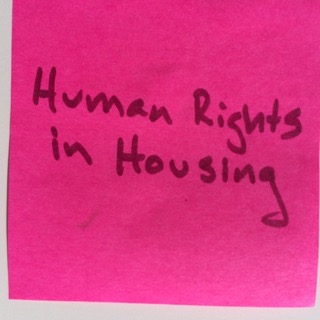 Human Rights
in Housing